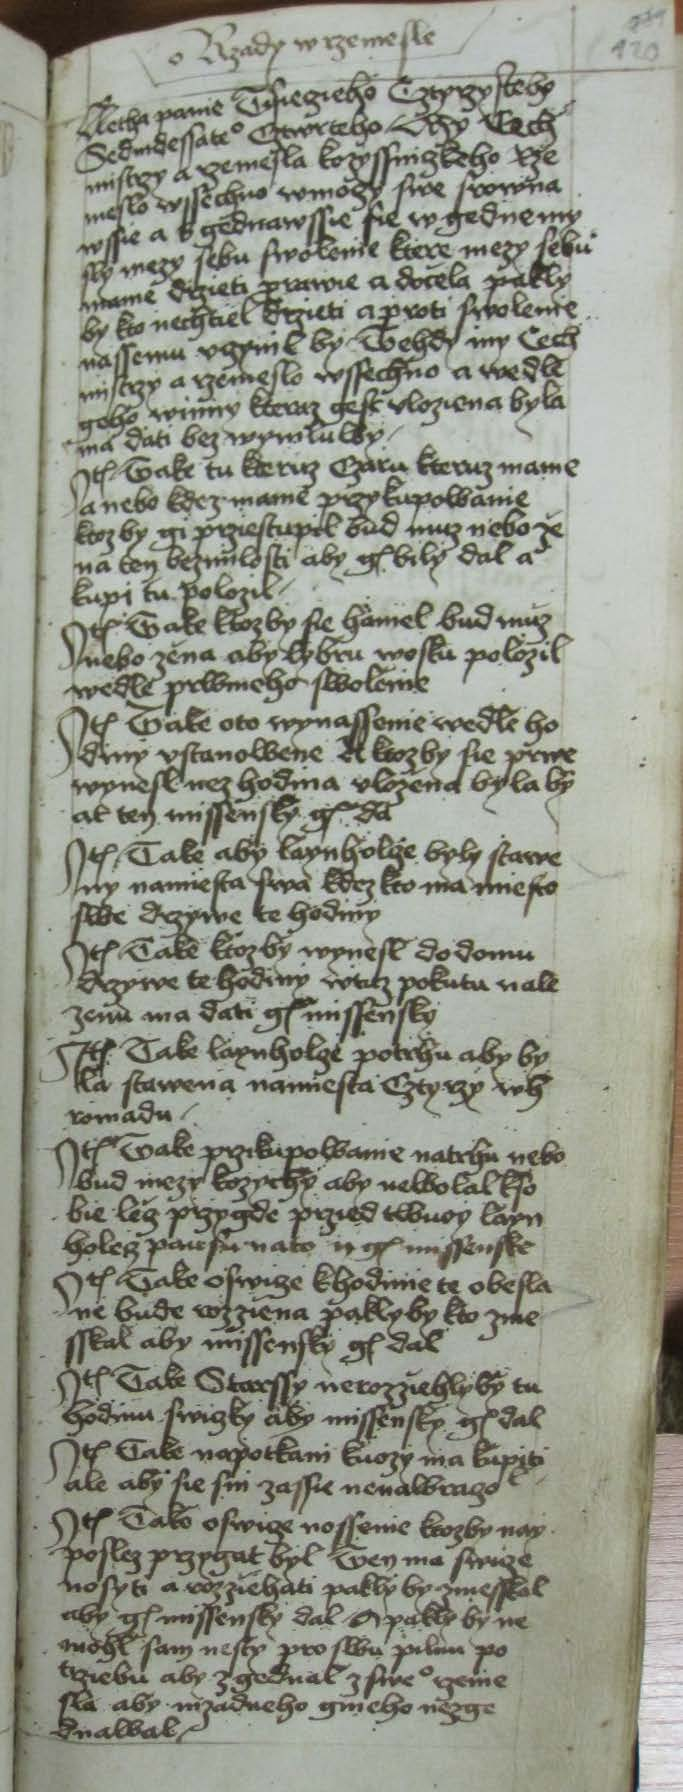 o Rzady w rzemesle
420
Letha panie Tisiczieho Cztyrzysteho
Sedmdessateo Cztwrteho My Cech
mistrzy a rzemesla kozyssnizkeho Rze
meslo wssechno wmozy swe srowna
wssie a s gednawssie sie w gedne my
sly mezy sebu swolenie ktere mezy sebu
mame drzieti prawie a docela pakly
by kto nechtiel drzieti a proti swolenie
nassemu vczynil by Tehdy my Cech
mistrzy a rzemeslo wssechno a wedle
geho winny kteraz gest vloziena byla
ma dati bez wymluwy
Itē Take tu kteruz Czaru kteruz mame
a nebo kdez mame przykupowanie
ktoz by gi prziestupil bud muz nebo ze
na ten bezmilosti aby gr bily dal a
kupi tu polozil
Itē Take ktozby sie haniel bud muz
nebo zena aby lybru wosku polozil
wedle prwnieho swolenie
Itē Take oto wynassenie wedle ho
diny vstanowene A ktozby sie prwe
wynesl nez hodina vlozena byla by
at ten missensky gr da
Itē Take aby laynholze byly stawe
ny namiesta swa kdez kto ma miesto
swe drzywe te hodiny
Itē Take ktozby wynesl dodomu
drzywe te hodiny wtuz pokutu nale
zenu ma dati gr missensky
Itē Take laynholze potrhu aby by
la stawena namiesta Cztyrzy wh
romadu
Itē Take przikupowanie natrhu nebo
bud mezy kozychy aby newolal kso
bie lez przygde przied twuoy layn
holcz nato gr missenske
Itē Take oswize khodinie te obesla
ne bude rozziena paklyby kto zme
sskal aby missensky gr dal
Itē Take Starssy nerozziehlyby tu
hodinu swiczky aby missensky gr dal
Itē Take napotkani kuozy ma kupiti
ale aby sie sni zassie nenawrazo
Itē Tako oswize nossenie ktozby nay
poslez przygat byl Ten ma swize
nosyti a rozziehati pakly by zmesskal
aby gr missensky dal A pakly by ne
mohl sam nesty pro swu pilnu po
trziebu aby zgednal z sweo rzeme
sla aby nizadneho gineho nezge
dnawal